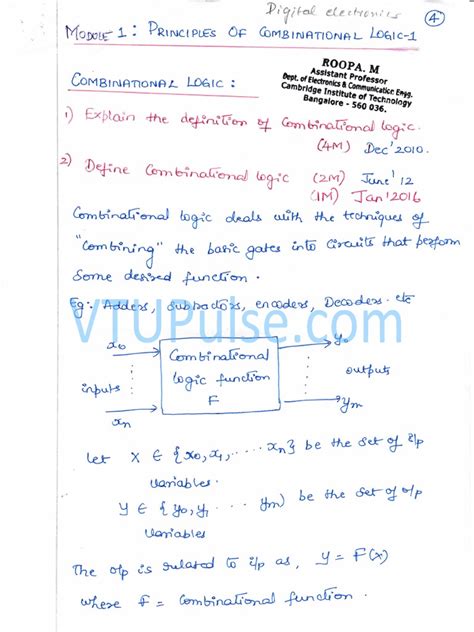 Digital electronics
4
MODULE 1: PRINCIPLES OF COMBINATIONAL LOGIC-1
ROOPA. M
Assistant Professor
Dept. of Electronics & Communication Engg.
Cambridge Institute of Technology
Bangalore - 560 036.
COMBINATIONAL LOGIC:
1) Explain the definition of Combinational logic.
(4M) Dec'2010.
2) Define Combinational logic (2M) June'12
(1M) Jan'2016
Combinational logic deals with the techniques of
"Combining" the basic gates into Circuits that perform
Some desired function.
Eg:- Adders, subractors, encoders, Decoders. etc
VTUPulse.com
x0
y0
Combinational
logic function
F
inputs
outputs
xn
ym
Let X ∈ {x0, x1, ..... xn} be the set of i/p
variables.
Y ∈ {y0, y1, ..... ym) be the set of o/p
variables
The o/p is related to i/p as, y = F(x)
where F = Combinational function.